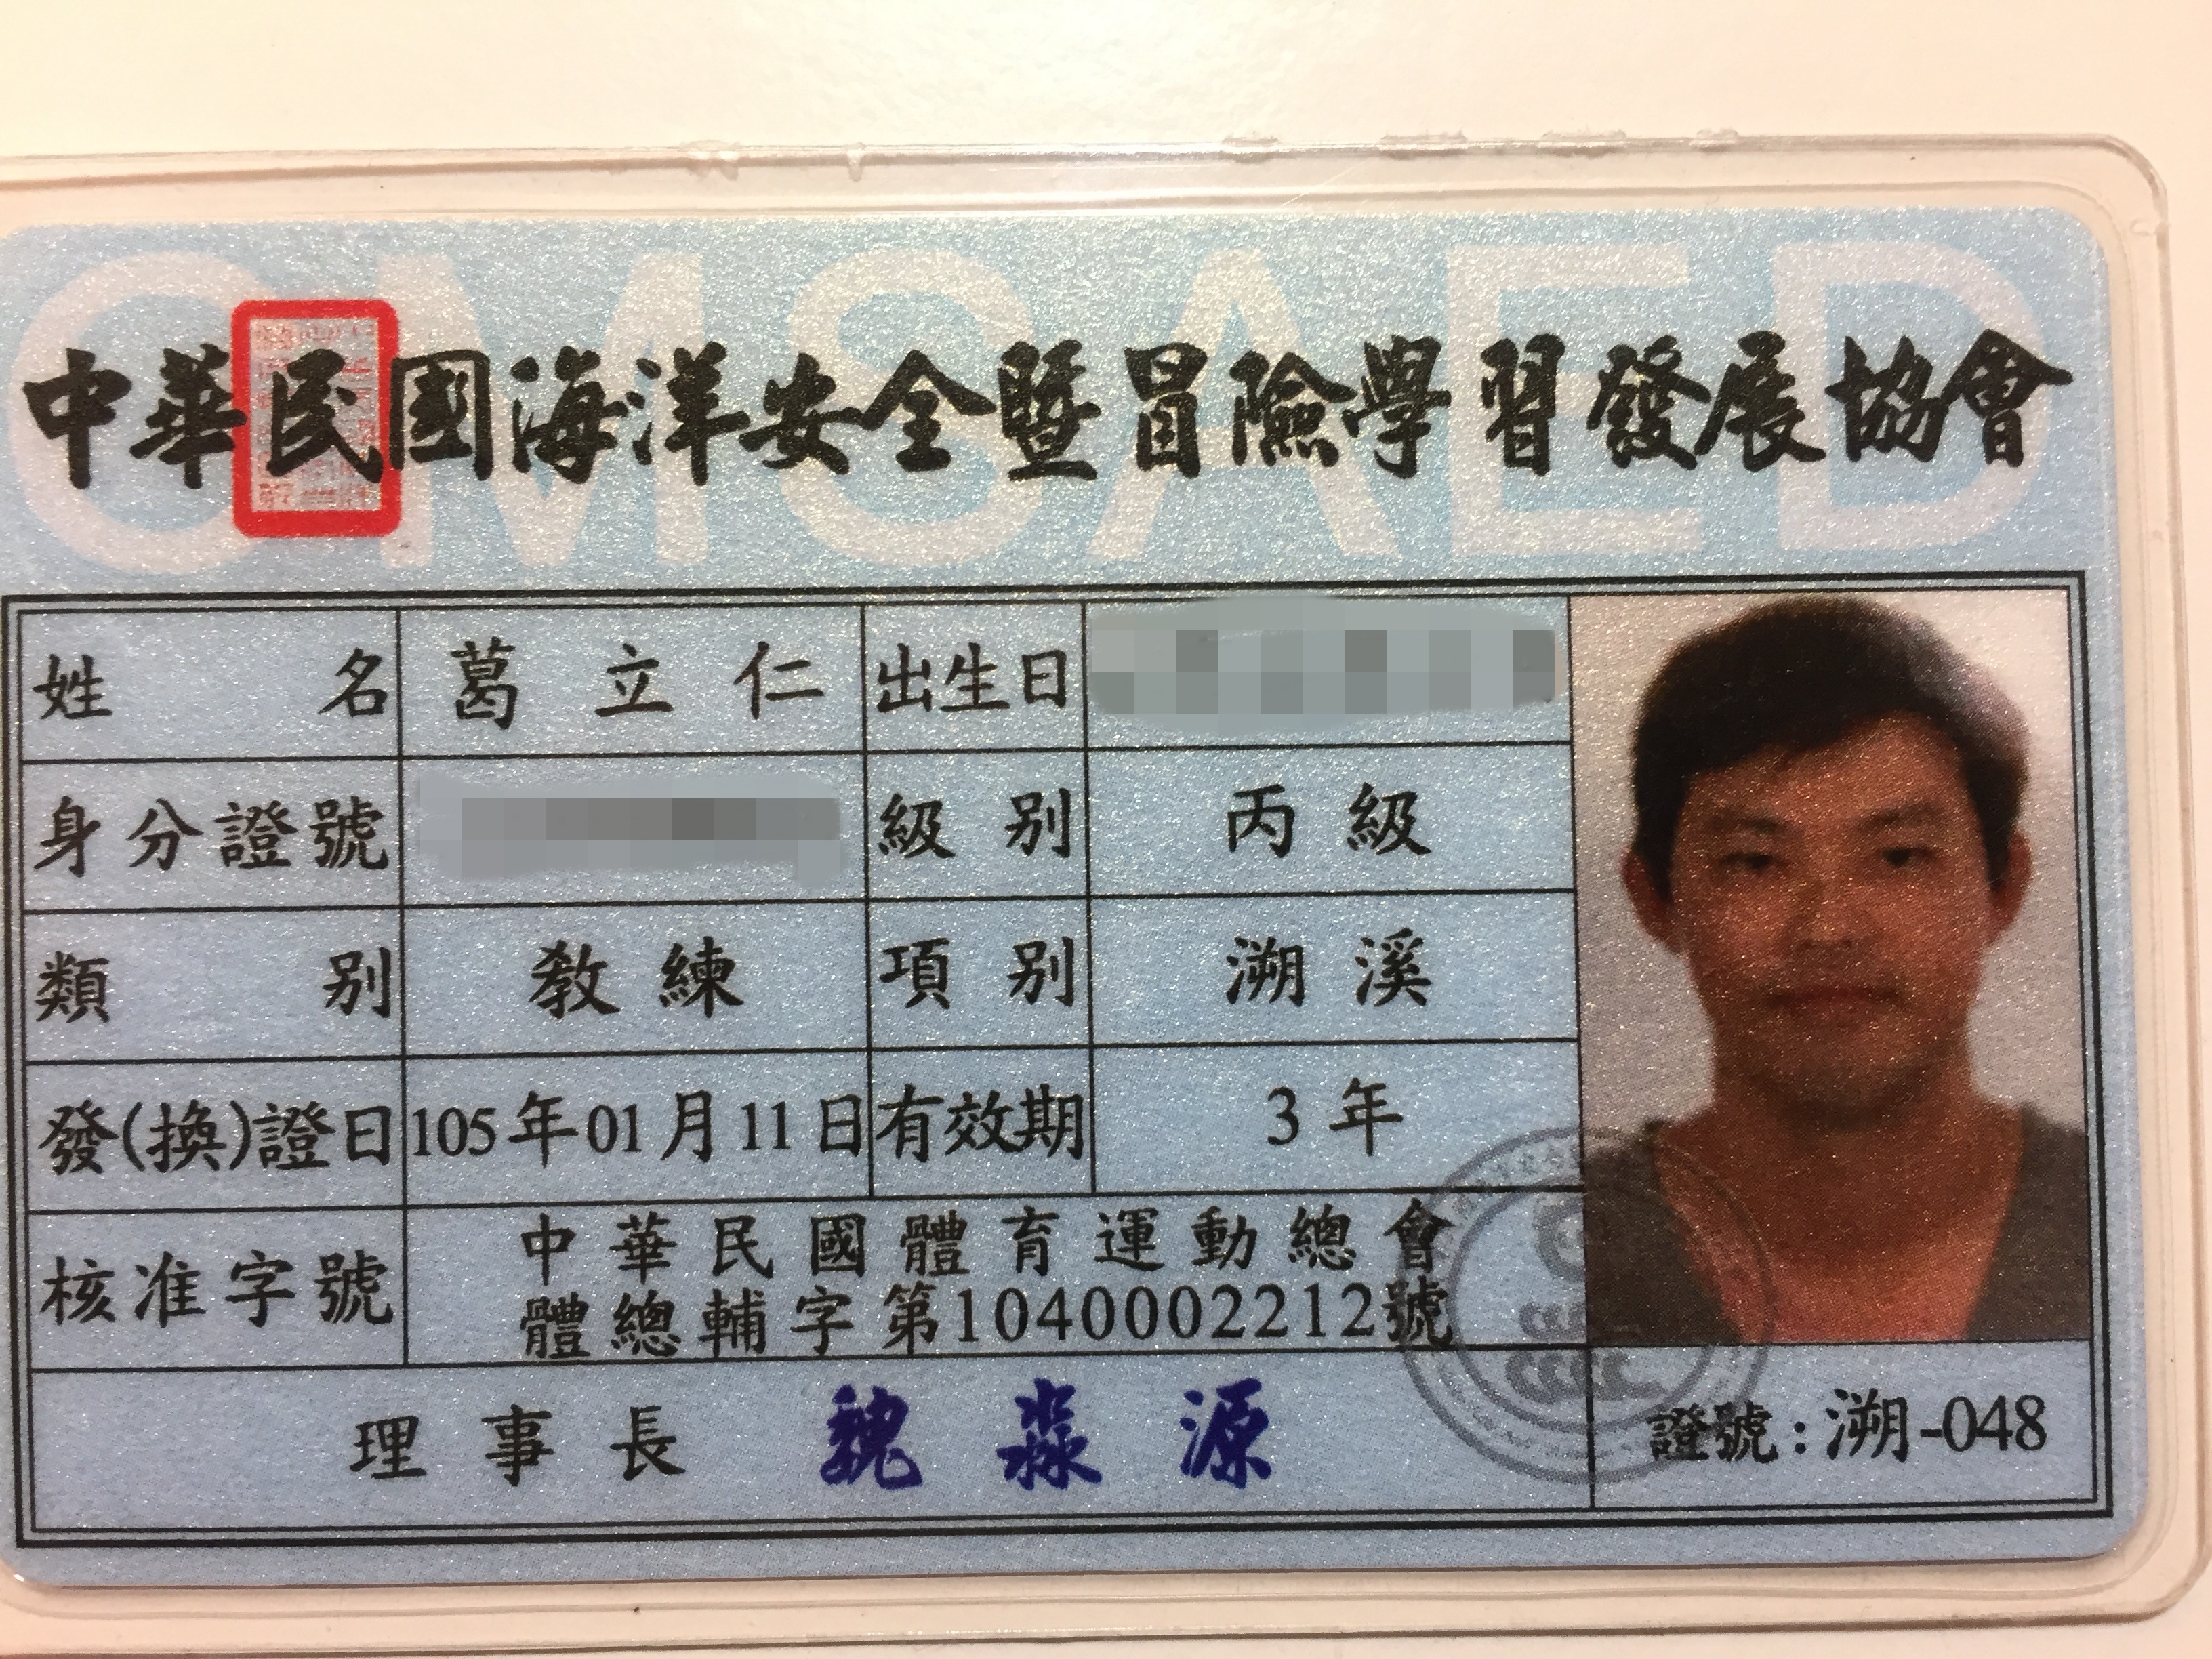 CMSAED
中華民國海洋安全暨冒險學習發展協會
姓名 葛立仁 出生日
身分證號 級別 丙級
類別 教練 項別 溯溪
發(換)證日 105年01月11日 有效期 3年
核准字號 中華民國體育運動總會
體總輔字第1040002212號
理事長 魏淼源 證號:溯-048